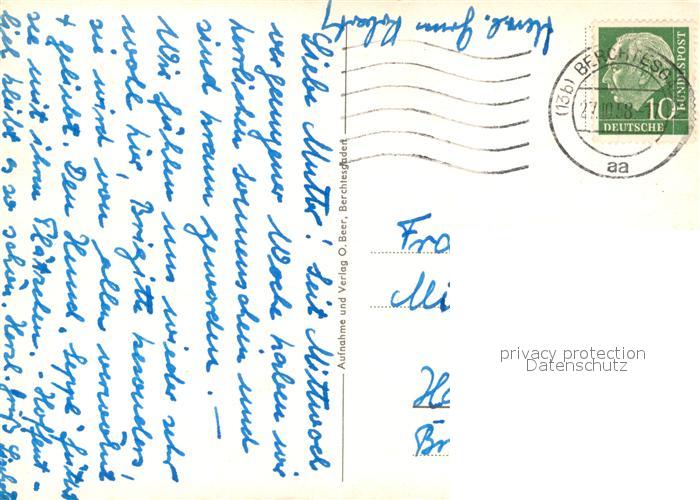 Liebe Mutter! Seit Mittwoch
vergangener Woche haben wir
herrlichen Sonnenschein und
sind braun geworden. —
Wir fühlen uns wieder sehr
wohl hier, Brigitte besonders,
sie wird von allen verwöhnt
+ geliebt. Den Hund, "Seppl" füttert
sie mit ihrem Plätzchen. - Hoffent-
lich bleibt es so schön. Herzl. Grüße
Herzl. Robert
Aufnahme und Verlag O. Beer, Berchtesgaden
(13b) BERCHTESG
27.10.58
aa
10
DEUTSCHE
BUNDESPOST
Fra
Mü
H
Br
privacy protection
Datenschutz